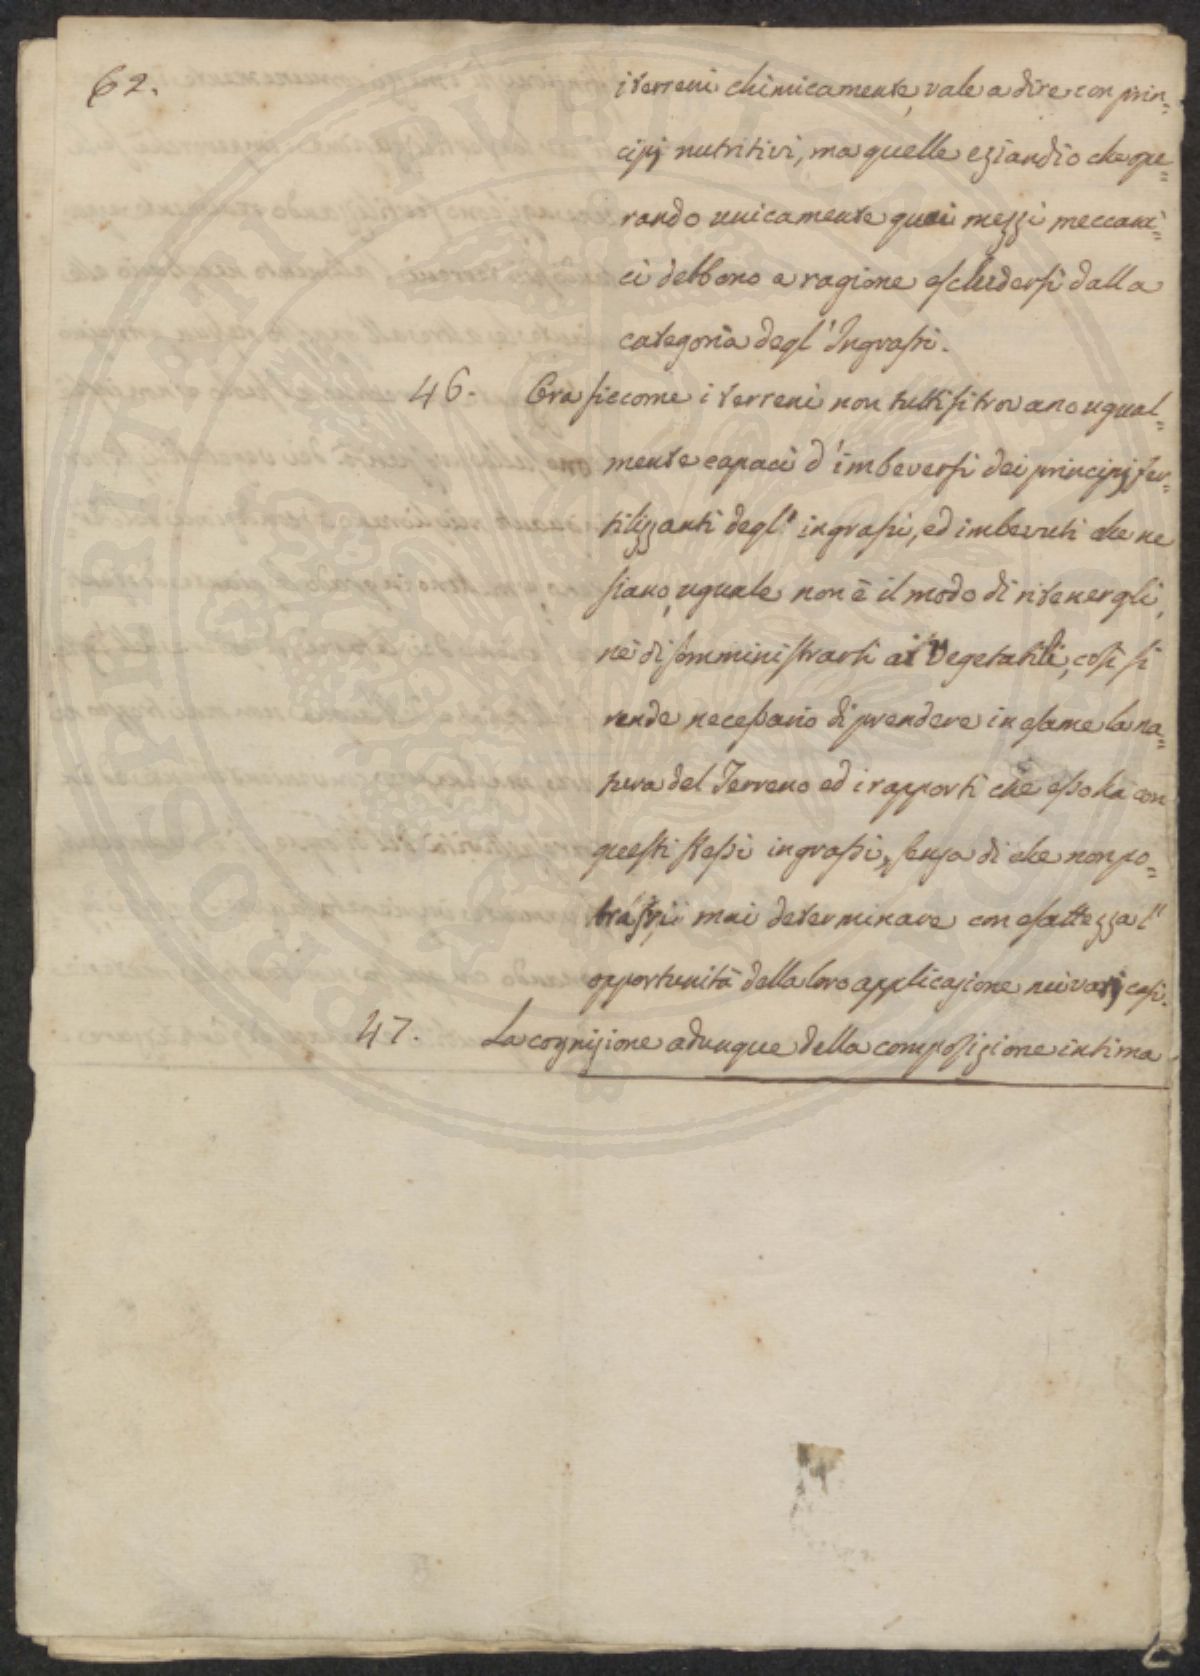 62.
i terreni chimicamente, vale a dire con prin=
cipj nutritivi, ma quelle eziandio che ope=
rando unicamente quai mezzi meccani=
ci debbono a ragione escludersi dalla
categoria degl'Ingrassi.
46. Ora siccome i terreni non tutti si trovano ugual=
mente capaci d'imbeversi dei principj fer=
tilizzanti degl'ingrassi, ed imbevuti che ne
siano, uguale non è il modo di ritenergli,
nè di somministrarli ai Vegetabili, così si
rende necessario di prendere in esame la na=
tura del Terreno ed i rapporti che esso ha con
questi stessi ingrassi, senza di che non po=
trassi mai determinare con esattezza l'
opportunità della loro applicazione nei varj casi.
47. La cognizione adunque della composizione intima